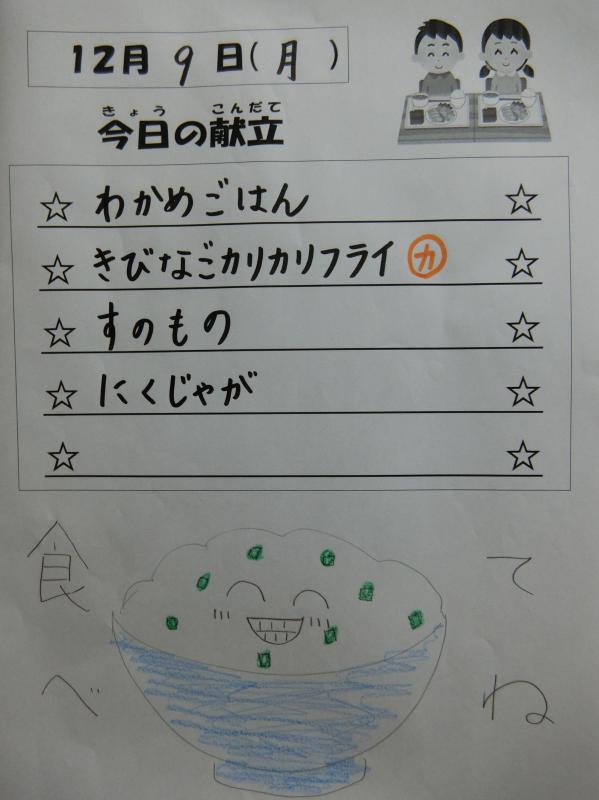 12月 9 日(月)
きょう こんだて
今日の献立
☆ わかめごはん ☆
☆ きびなごカリカリフライ カ ☆
☆ すのもの ☆
☆ にくじゃが ☆
☆ ☆
食べ
てね